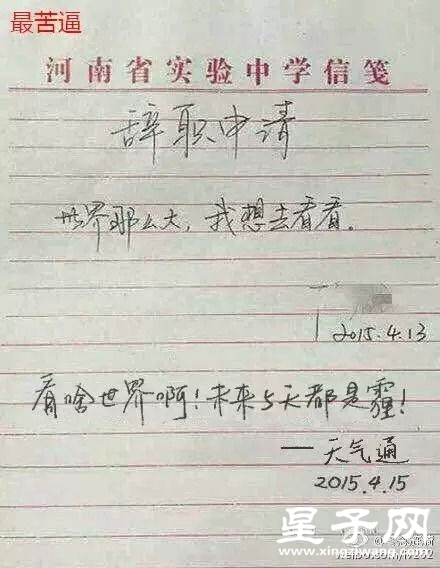 最苦逼
河南省实验中学信笺
辞职申请
世界那么大，我想去看看.
2015.4.13
看啥世界啊！未来5天都是霾！
——天气通
2015.4.15
星子网
www.xingziwang.com